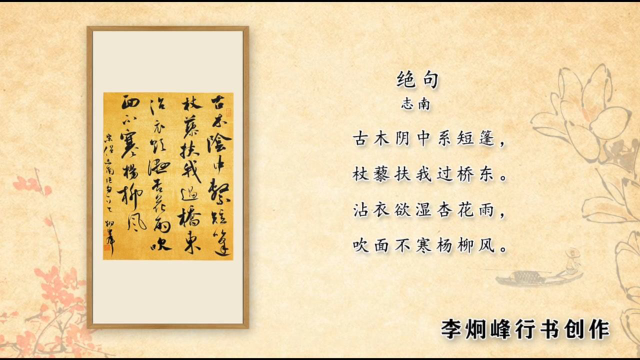 绝句
志南
古木阴中系短篷，
杖藜扶我过桥东。
沾衣欲湿杏花雨，
吹面不寒杨柳风。
古木陰中繫短篷
杖藜扶我過橋東
沾衣欲濕杏花雨吹
面不寒楊柳風
李炯峰行书创作